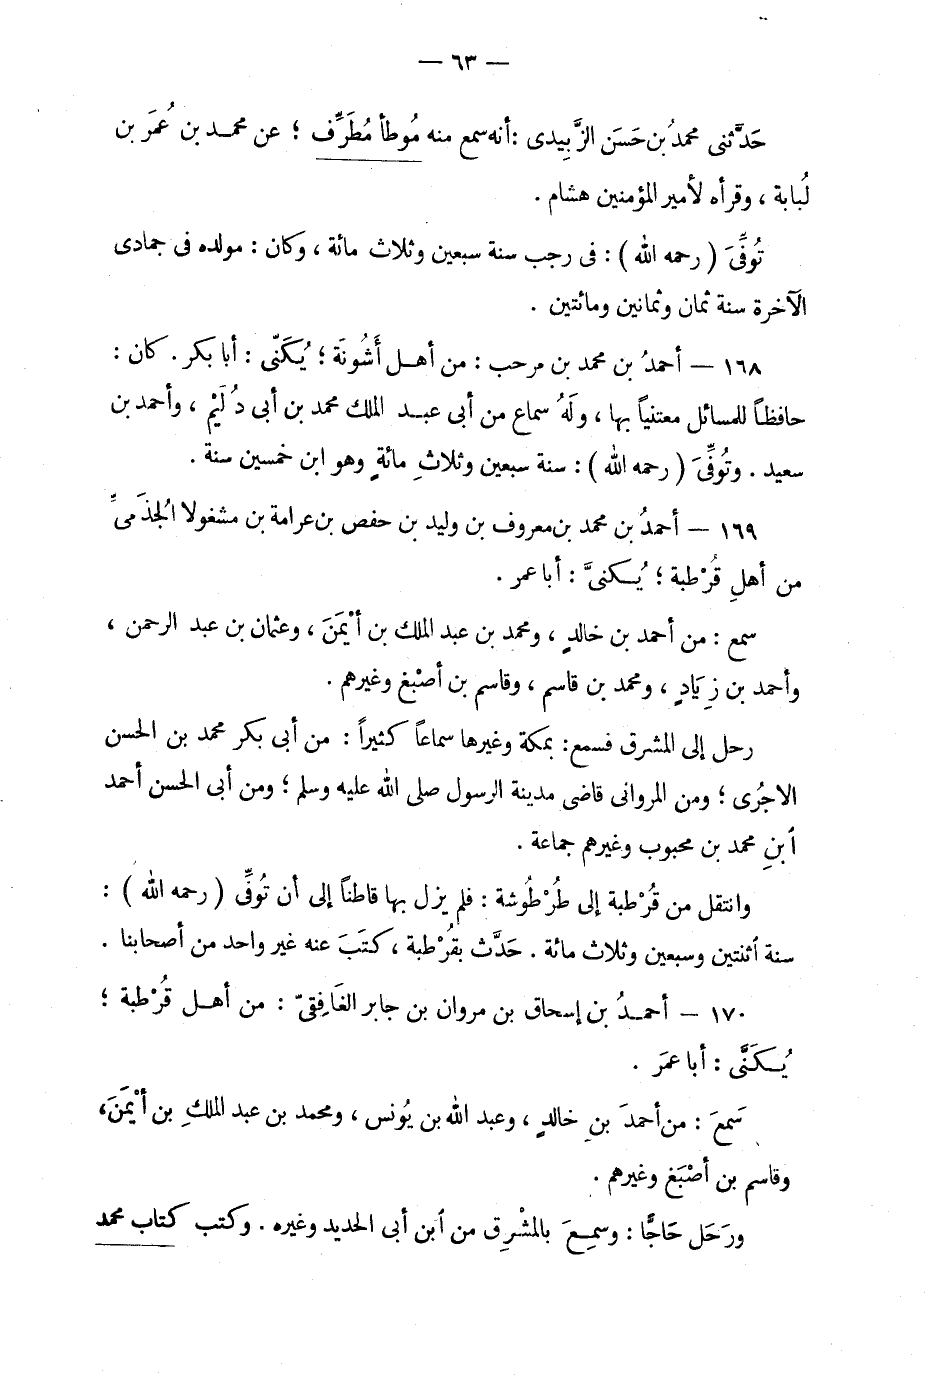 — ٦٣ —
حَدَّثنى محمدُ بن حَسَن الزَّبِيدى : أنه سمع منه مُوطأ مُطَرِّف ؛ عن محمد بن عُمَر بن
لُبابة ، وقرأه لأمير المؤمنين هشام .
تُوفِّىَ ( رحمه الله ) : فى رجب سنة سبعين وثلاث مائة ، وكان : مولده فى جمادى
الآخرة سنة ثمان وثمانين ومائتين .
١٦٨ — أحمدُ بن محمد بن مرحب : من أهل أَشُونَة ؛ يُكَنّى : أبا بكر . كان :
حافظاً للمسائل معتنياً بها ، ولَهُ سماع من أبى عبد الملك محمد بن أبى دُلَيْم ، وأحمد بن
سعيد . وتُوفِّىَ ( رحمه الله ) : سنة سبعين وثلاثِ مائةٍ وهو ابن خمسين سنة .
١٦٩ — أحمدُ بن محمد بن معروف بن وليد بن حفص بن عرامة بن مشغولا الجُذَمىِّ
من أهلِ قُرْطبة ؛ يُكنىَّ : أبا عمر .
سمع : من أحمد بن خالدٍ ، ومحمد بن عبد الملك بن أيْمَنَ ، وعثمان بن عبد الرحمن ،
وأحمد بن زِيَادٍ ، ومحمد بن قاسم ، وقاسم بن أصْبغ وغيرهم .
رحل إلى المشرق فسمع : بمكة وغيرها سماعاً كثيراً : من أبى بكر محمد بن الحسن
الاجُرى ؛ ومن المروانى قاضى مدينة الرسول صلى الله عليه وسلم ؛ ومن أبى الحسن أحمد
ٱبنِ محمد بن محبوب وغيرهم جماعة .
وانتقل من قُرْطبة إلى طُرْطُوشة : فلم يزل بها قاطناً إلى أن تُوفِّى ( رحمه الله ) :
سنة ٱثنتين وسبعين وثلاث مائة . حَدَّث بقُرْطبة ، كتَبَ عنه غير واحد من أصحابنا .
١٧٠ — أحمدُ بن إسحاق بن مروان بن جابر الغَافِقىّ : من أهل قُرْطبة ؛
يُكَنَّى : أبا عمَرَ .
سَمعَ : من أحمدَ بنِ خالدٍ ، وعبد الله بن يُونس ، ومحمد بن عبد الملكِ بن أيْمَنَ ،
وقاسم بن أصْبَغ وغيرهم .
ورَحَل حَاجًّا : وسمِعَ بالمشْرِق من ٱبن أبى الحديد وغيره . وكتب كتاب محمد